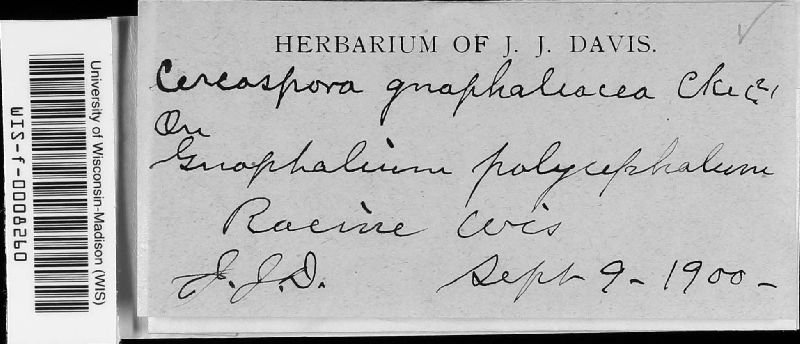 HERBARIUM OF J. J. DAVIS.
Cercospora gnaphaliacea Cke (?)
On
Gnaphalium polycephalum
Racine Wis
J. J. D. Sept 9 - 1900 -
University of Wisconsin-Madison (WIS)
WIS-f-0008260